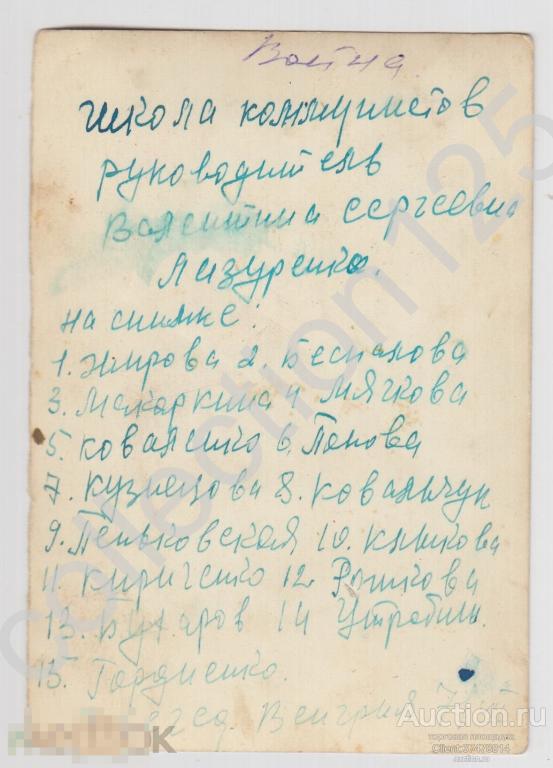 Война
школа коммунистов
руководитель
Валентина Сергеевна
Лазуренко.
на снимке:
1. Жирова 2. Беспалова
3. Макаркина 4 Мягкова
5. Коваленко 6. Попова
7. Кузнецова 8. Ковальчук
9. Пеньковская 10. Клыкова
11 Кириченко 12. Рыжкова
13. Бухаров 14 Утробин.
15. Гордиенко.
Венгрия
collection 125
Auction.ru
торговая площадка
Client:37420814